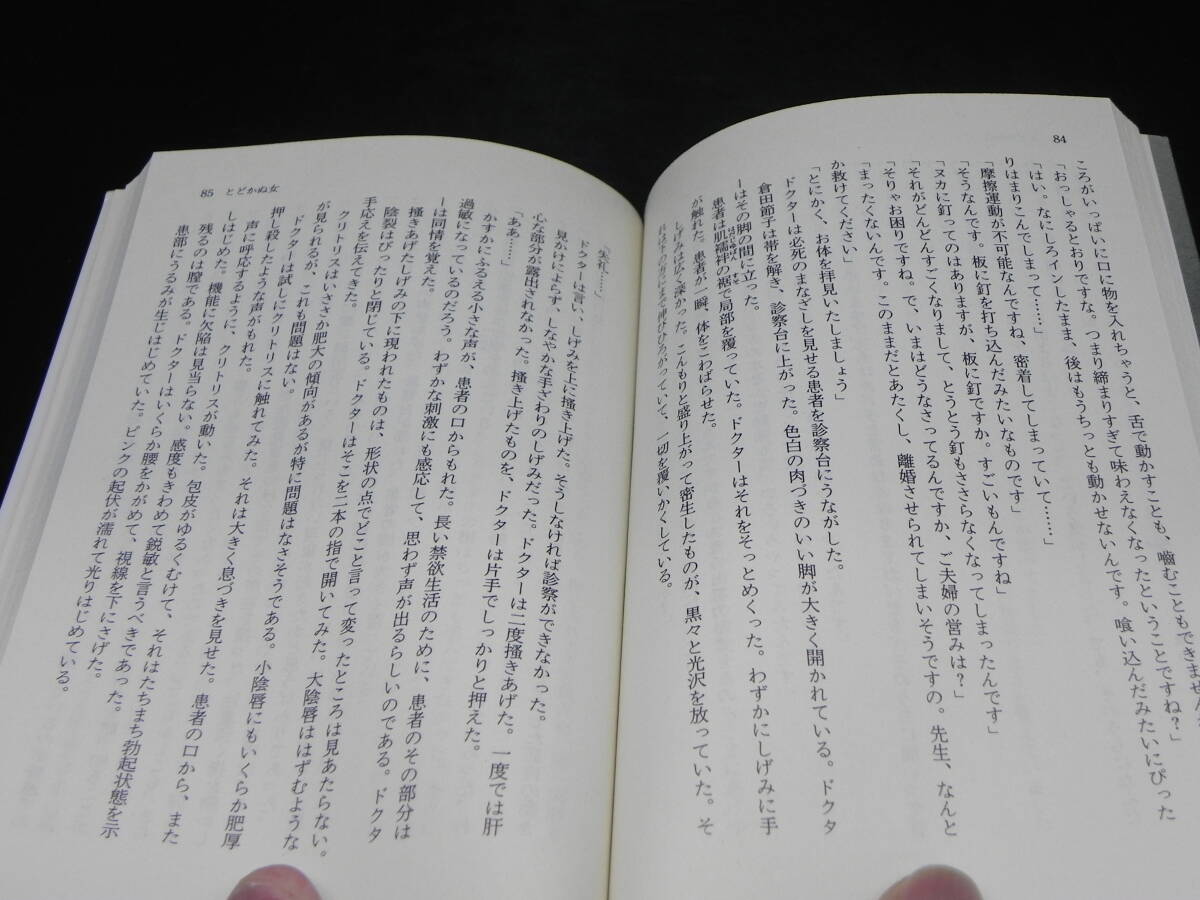 84
ころがいっぱいに口に物を入れちゃうと、舌で動かすことも、噛むこともできません
「おっしゃるとおりですな。つまり締まりすぎて味わえなくなったということですね？」
「はい。なにしろインしたまま、後はもうちっとも動かせないんです。喰い込んだみたいにぴった
りはまりこんでしまって……」
「摩擦運動が不可能なんですね、密着してしまっていて……」
「そうなんです。板に釘を打ち込んだみたいなものです」
「ヌカに釘ってのはありますが、板に釘ですか。すごいもんですね」
「それがどんどんすごくなりまして、とうとう釘もささらなくなってしまったんです」
「そりゃお困りですね。で、いまはどうなさってるんですか、ご夫婦の営みは？」
「まったくないんです。このままだとあたくし、離婚させられてしまいそうですの。先生、なんと
か救けてください」
「とにかく、お体を拝見いたしましょう」
ドクターは必死のまなざしを見せる患者を診察台にうながした。
倉田節子は帯を解き、診察台に上がった。色白の肉づきのいい脚が大きく開かれている。ドクタ
ーはその脚の間に立った。
患者は肌襦袢の裾で局部を覆っていた。ドクターはそれをそっとめくった。わずかにしげみに手
が触れた。患者が一瞬、体をこわばらせた。
しげみは広く深かった。こんもりと盛り上がって密生したものが、黒々と光沢を放っていた。そ
一切を覆いかくしている。
85　とどかぬ女
「失礼……」
ドクターは言い、しげみを上に掻き上げた。そうしなければ診察ができなかった。
見かけによらず、しなやかな手ざわりのしげみだった。ドクターは二度掻きあげた。一度では肝
心な部分が露出されなかった。掻き上げたものを、ドクターは片手でしっかりと押えた。
「ああ……」
かすかにふるえる小さな声が、患者の口からもれた。長い禁欲生活のために、患者のその部分は
過敏になっているのだろう。わずかな刺激にも感応して、思わず声が出るらしいのである。ドクタ
ーは同情を覚えた。
掻きあげたしげみの下に現われたものは、形状の点でどこと言って変ったところは見あたらない。
陰裂はぴったりと閉じている。ドクターはそこを二本の指で開いてみた。大陰唇ははずむような
手応えを伝えてきた。
クリトリスはいささか肥大の傾向があるが特に問題はなさそうである。小陰唇にもいくらか肥厚
が見られるが、これも問題はない。
ドクターは試しにクリトリスに触れてみた。それは大きく息づきを見せた。患者の口から、また
押し殺したような声がもれた。
声に呼応するように、クリトリスが動いた。包皮がゆるくむけて、それはたちまち勃起状態を示
しはじめた。機能に欠陥は見当らない。感度もきわめて鋭敏と言うべきであった。
残るのは膣である。ドクターはいくらか腰をかがめて、視線を下にさげた。
患部にうるみが生じはじめていた。ピンクの起伏が濡れて光りはじめている。